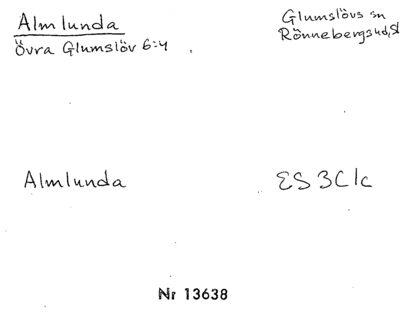 Almlunda
Övra Glumslöv 6:4
Glumslövs sn
Rönnebergs hd, Sk
Almlunda
ES 3C/c
Nr 13638